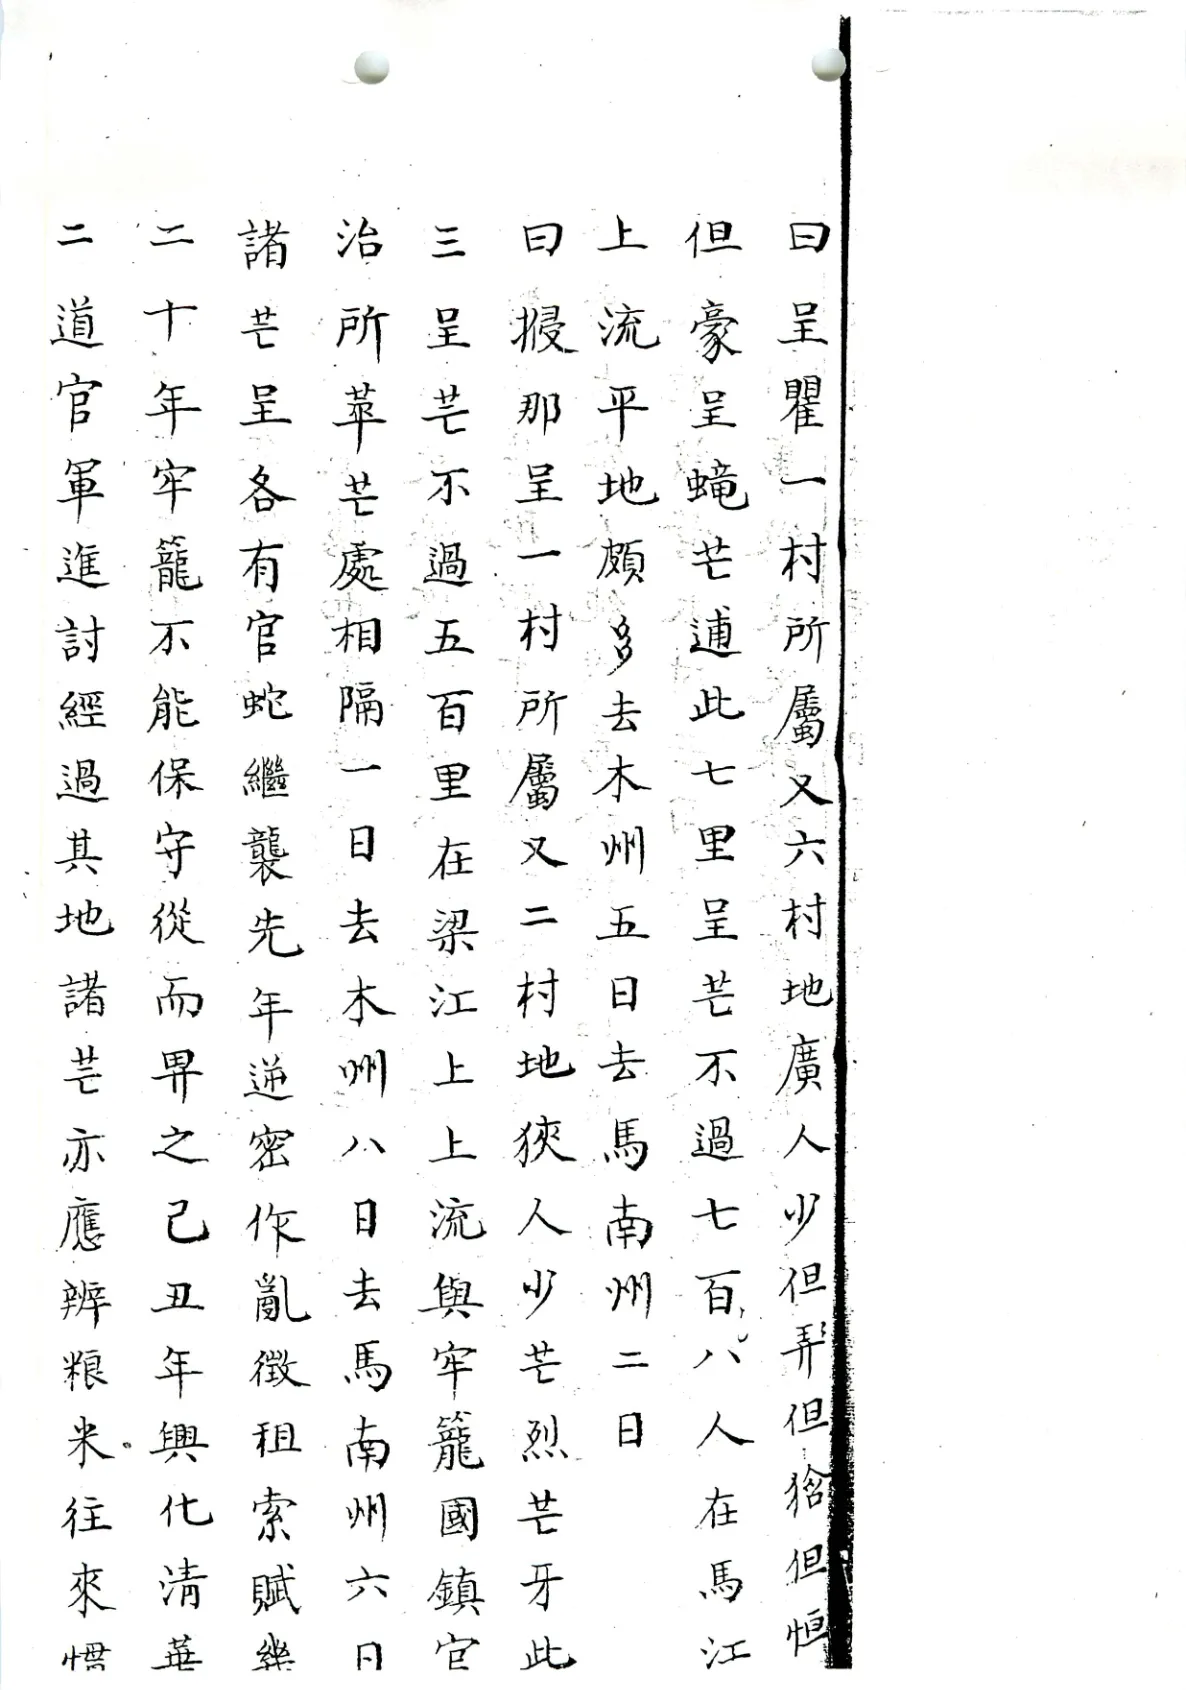 曰呈瞿一村所屬又六村地廣人少但弄但㺾但恒
但豪呈蟯芒逋此七里呈芒不過七百八人在馬江
上流平地頗多去木州五日去馬南州二日
曰掭那呈一村所屬又二村地狹人少芒烈芒牙此
三呈芒不過五百里在梁江上上流與牢籠國鎮官
治所苹芒處相隔一日去木州八日去馬南州六日
諸芒呈各有官蛇繼襲先年逆密作亂徵租索賦幾
二十年牢籠不能保守從而畀之己丑年興化清華
二道官軍進討經過其地諸芒亦應辨粮米往來慣